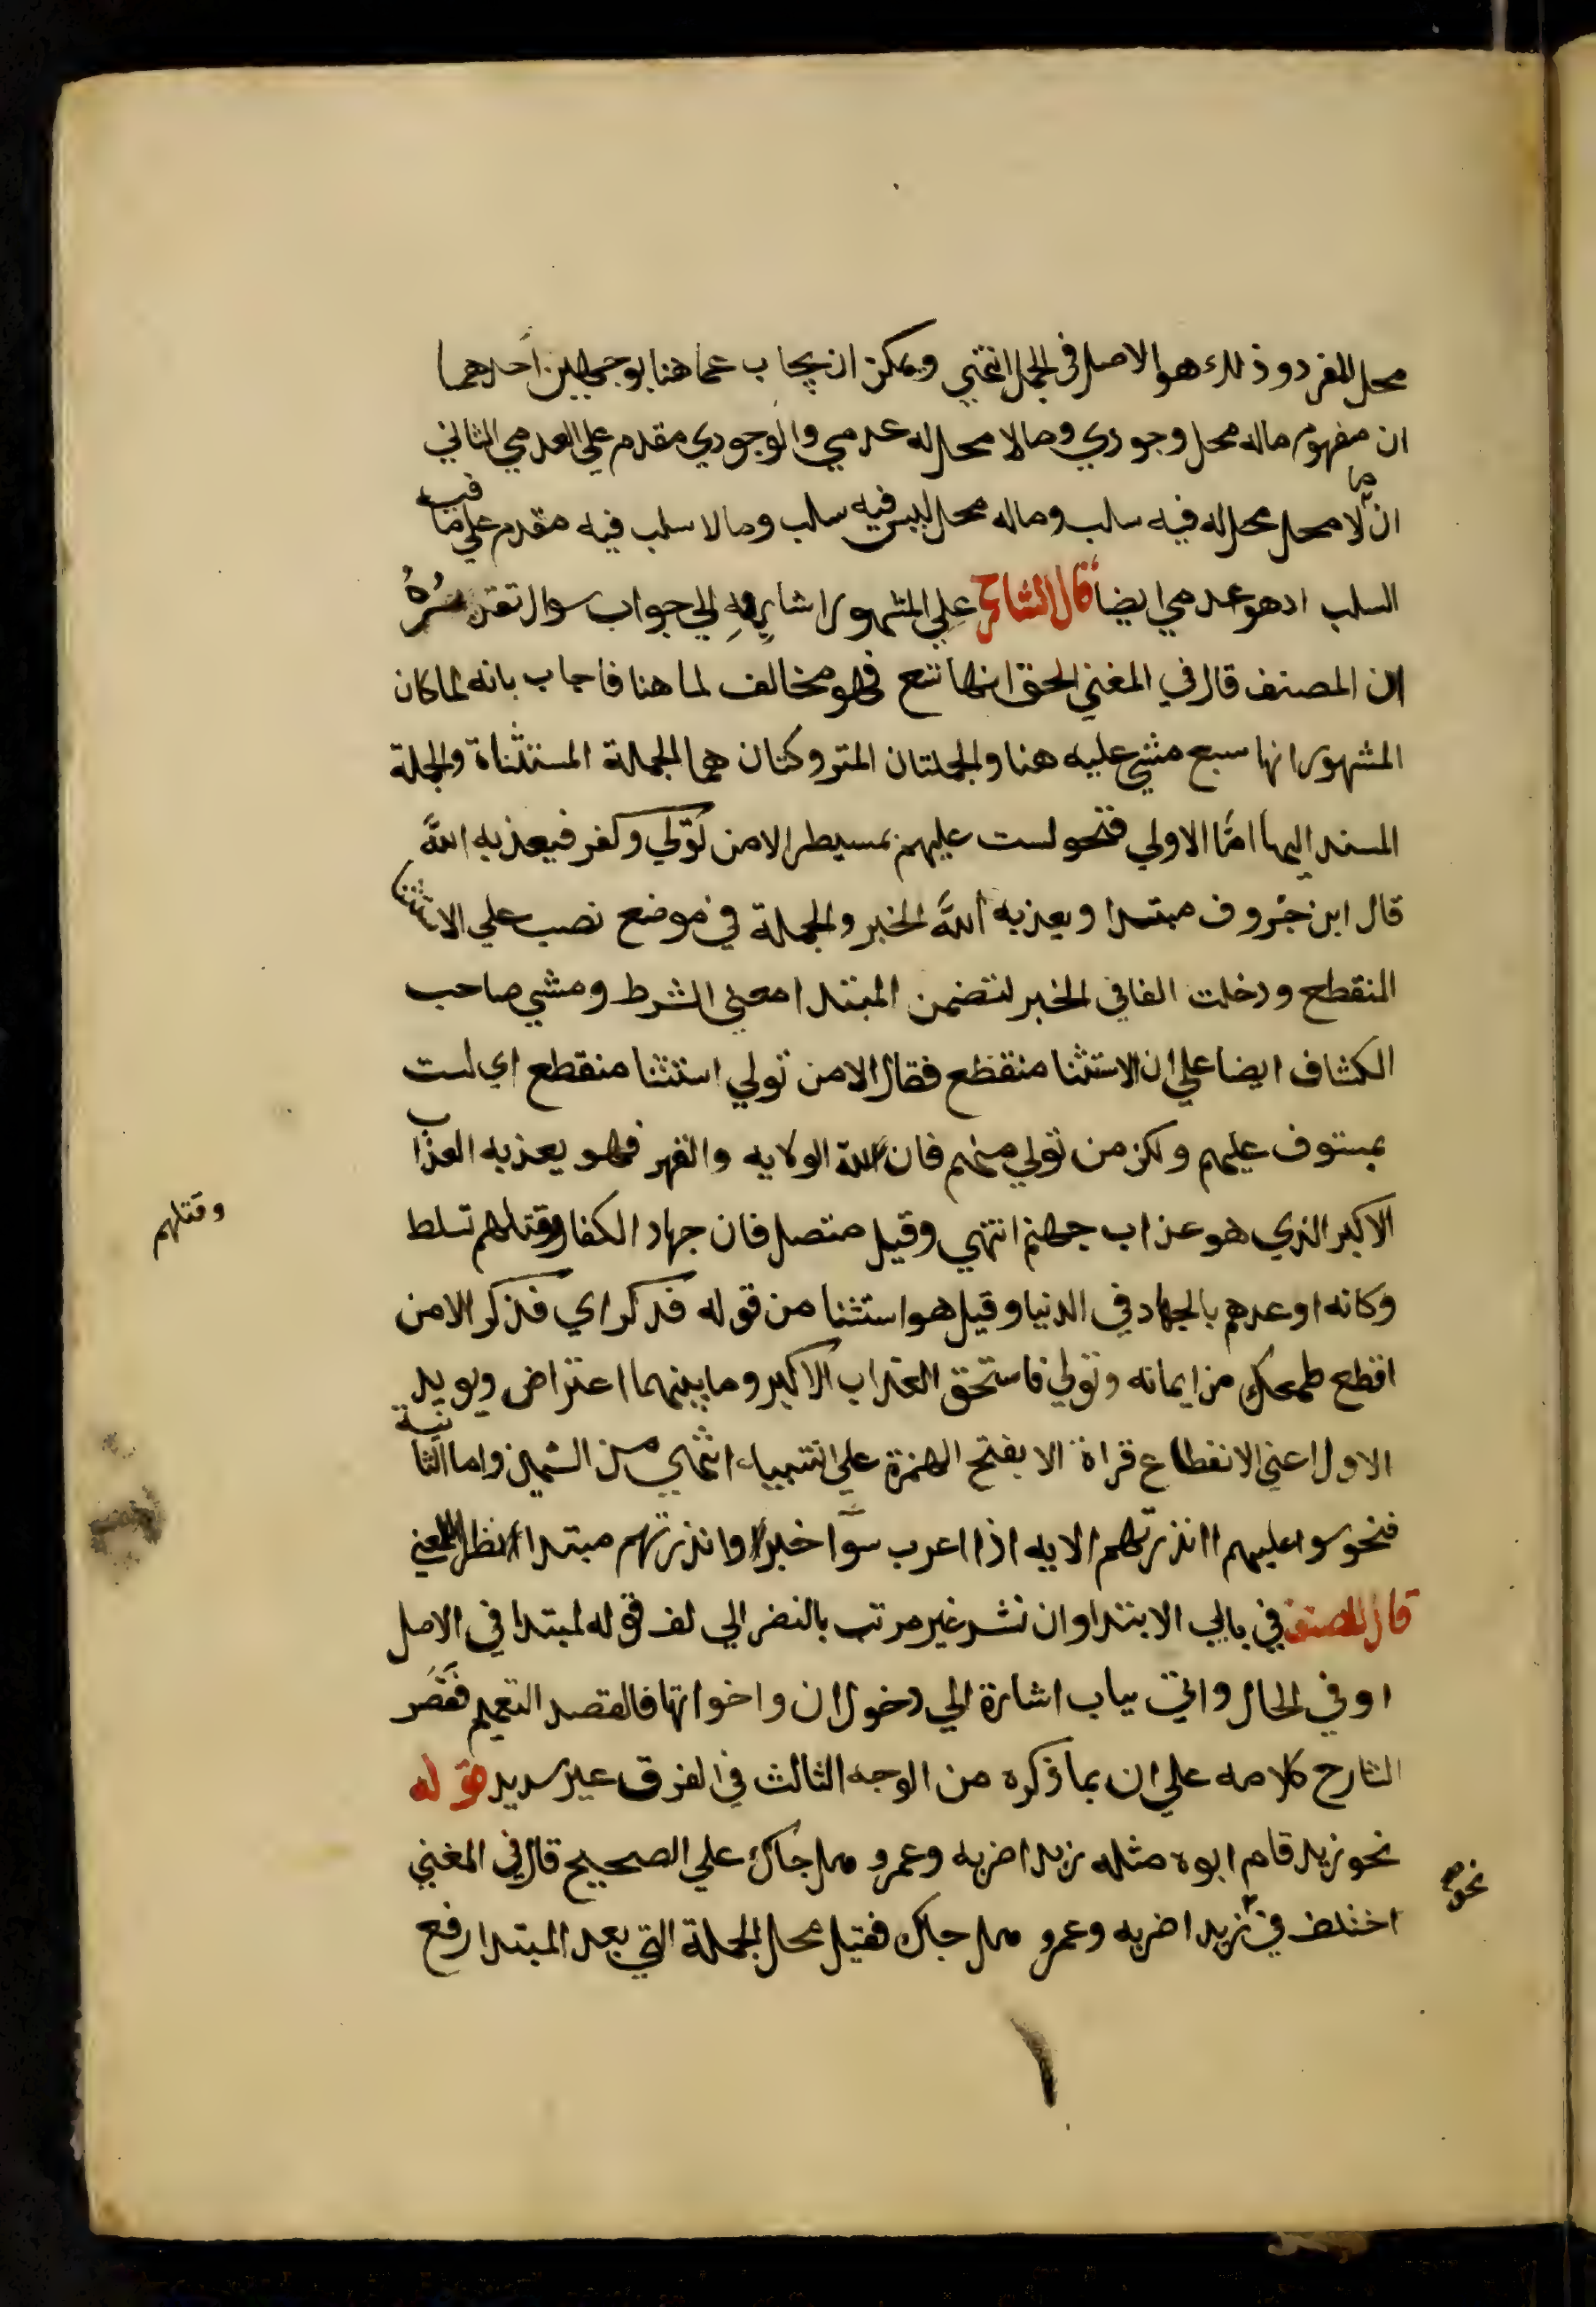 محل المفرد وذلك هو الاصل في الجمل انتهي ويمكن ان يجاب عما هنا بوجهين احدهما
ان مفهوم ماله محل وجودي وما لا محل له عدمي والوجودي مقدم علي العدمي الثاني
ان ما لا محل محل له فيه سلب وماله محل ليس فيه سلب وما لا سلب فيه مقدم علي ما فيه
السلب اذ هو عدمي ايضا قال الشارح علي المشهور اشار به الي جواب سوال تقديره
ان المصنف قال في المغني الحق انها تسع فهو مخالف لما هنا فاجاب بانه لما كان
المشهور انها سبع مشي عليه هنا والجملتان المتروكتان هما الجملة المستثناة والجملة
المسند اليها امّا الاولي فنحو لست عليهم بمسيطر الا من تولي وكفر فيعذبه الله
قال ابن خروف من مبتدا ويعذبه الله الخبر والجملة في موضع نصب علي الاستثنا
المنقطع ودخلت الفا في الخبر لتضمن المبتدا معني الشرط ومشي صاحب
الكشاف ايضا علي ان الاستثنا منقطع فقال الا من تولي استثنا منقطع اي لست
بمستوف عليهم ولكن من تولي منهم فان لله الولايه والقهر فهو يعذبه العذاب
الاكبر الذي هو عذاب جهنم انتهي وقيل متصل فان جهاد الكفار وقتلهم تسلط
وقتلهم
وكانه اوعدهم بالجهاد في الدنيا وقيل هو استثنا من قوله فذكر اي فذكر الا من
اقطع طمعك من ايمانه وتولي فاستحق العذاب الاكبر وما بينهما اعتراض ويويد
الاول اعني الانقطاع قراة الا بفتح الهمزة علي التنبيه انتهي من السمين واما الثانية
فنحو سوا عليهم اانذرتهم الايه اذا اعرب سوآ خبرا وانذرتهم مبتدا انظر المغني
قال المصنف في بابي الابتدا وان نشر غير مرتب بالنظر الي لف قوله لمبتدا في الاصل
او في الحال واتي بباب اشارة الي دخول ان واخواتها فالقصد التعميم فقصر
الشارح كلامه علي ان بما ذكره من الوجه الثالث في الفرق غير سديد قوله
نحو زيد قام ابوه مثله زيد اضربه وعمرو هل جاك علي الصحيح قال في المغني
نحو
اختلف في زيد اضربه وعمرو هل جاك فقيل محل الجملة التي بعد المبتدا رفع